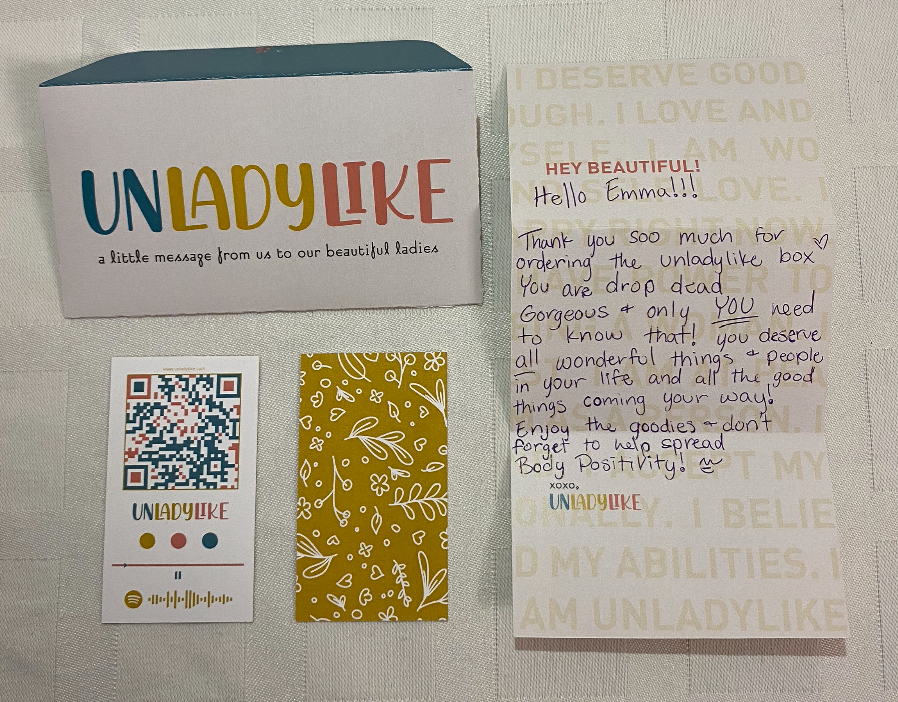 UNLADYLIKE
a little message from us to our beautiful ladies
UNLADYLIKE
I DESERVE GOOD
OUGH. I LOVE AND
YSELF. I AM WO
HEY BEAUTIFUL!
Hello Emma!!!
LOVE. I
Thank you soo much for
RIGHT NOW
ordering the unladylike box ♡
You are drop dead
POWER TO
Gorgeous + only YOU need
to know that! you deserve
all wonderful things + people
in your life and all the good
things coming your way!
A PERSON. I
Enjoy the goodies + don't
forget to help spread
Body Positivity!
ACCEPT MY
xoxo,
UNLADYLIKE
ONALLY. I BELIE
D MY ABILITIES. I
AM UNLADYLIKE